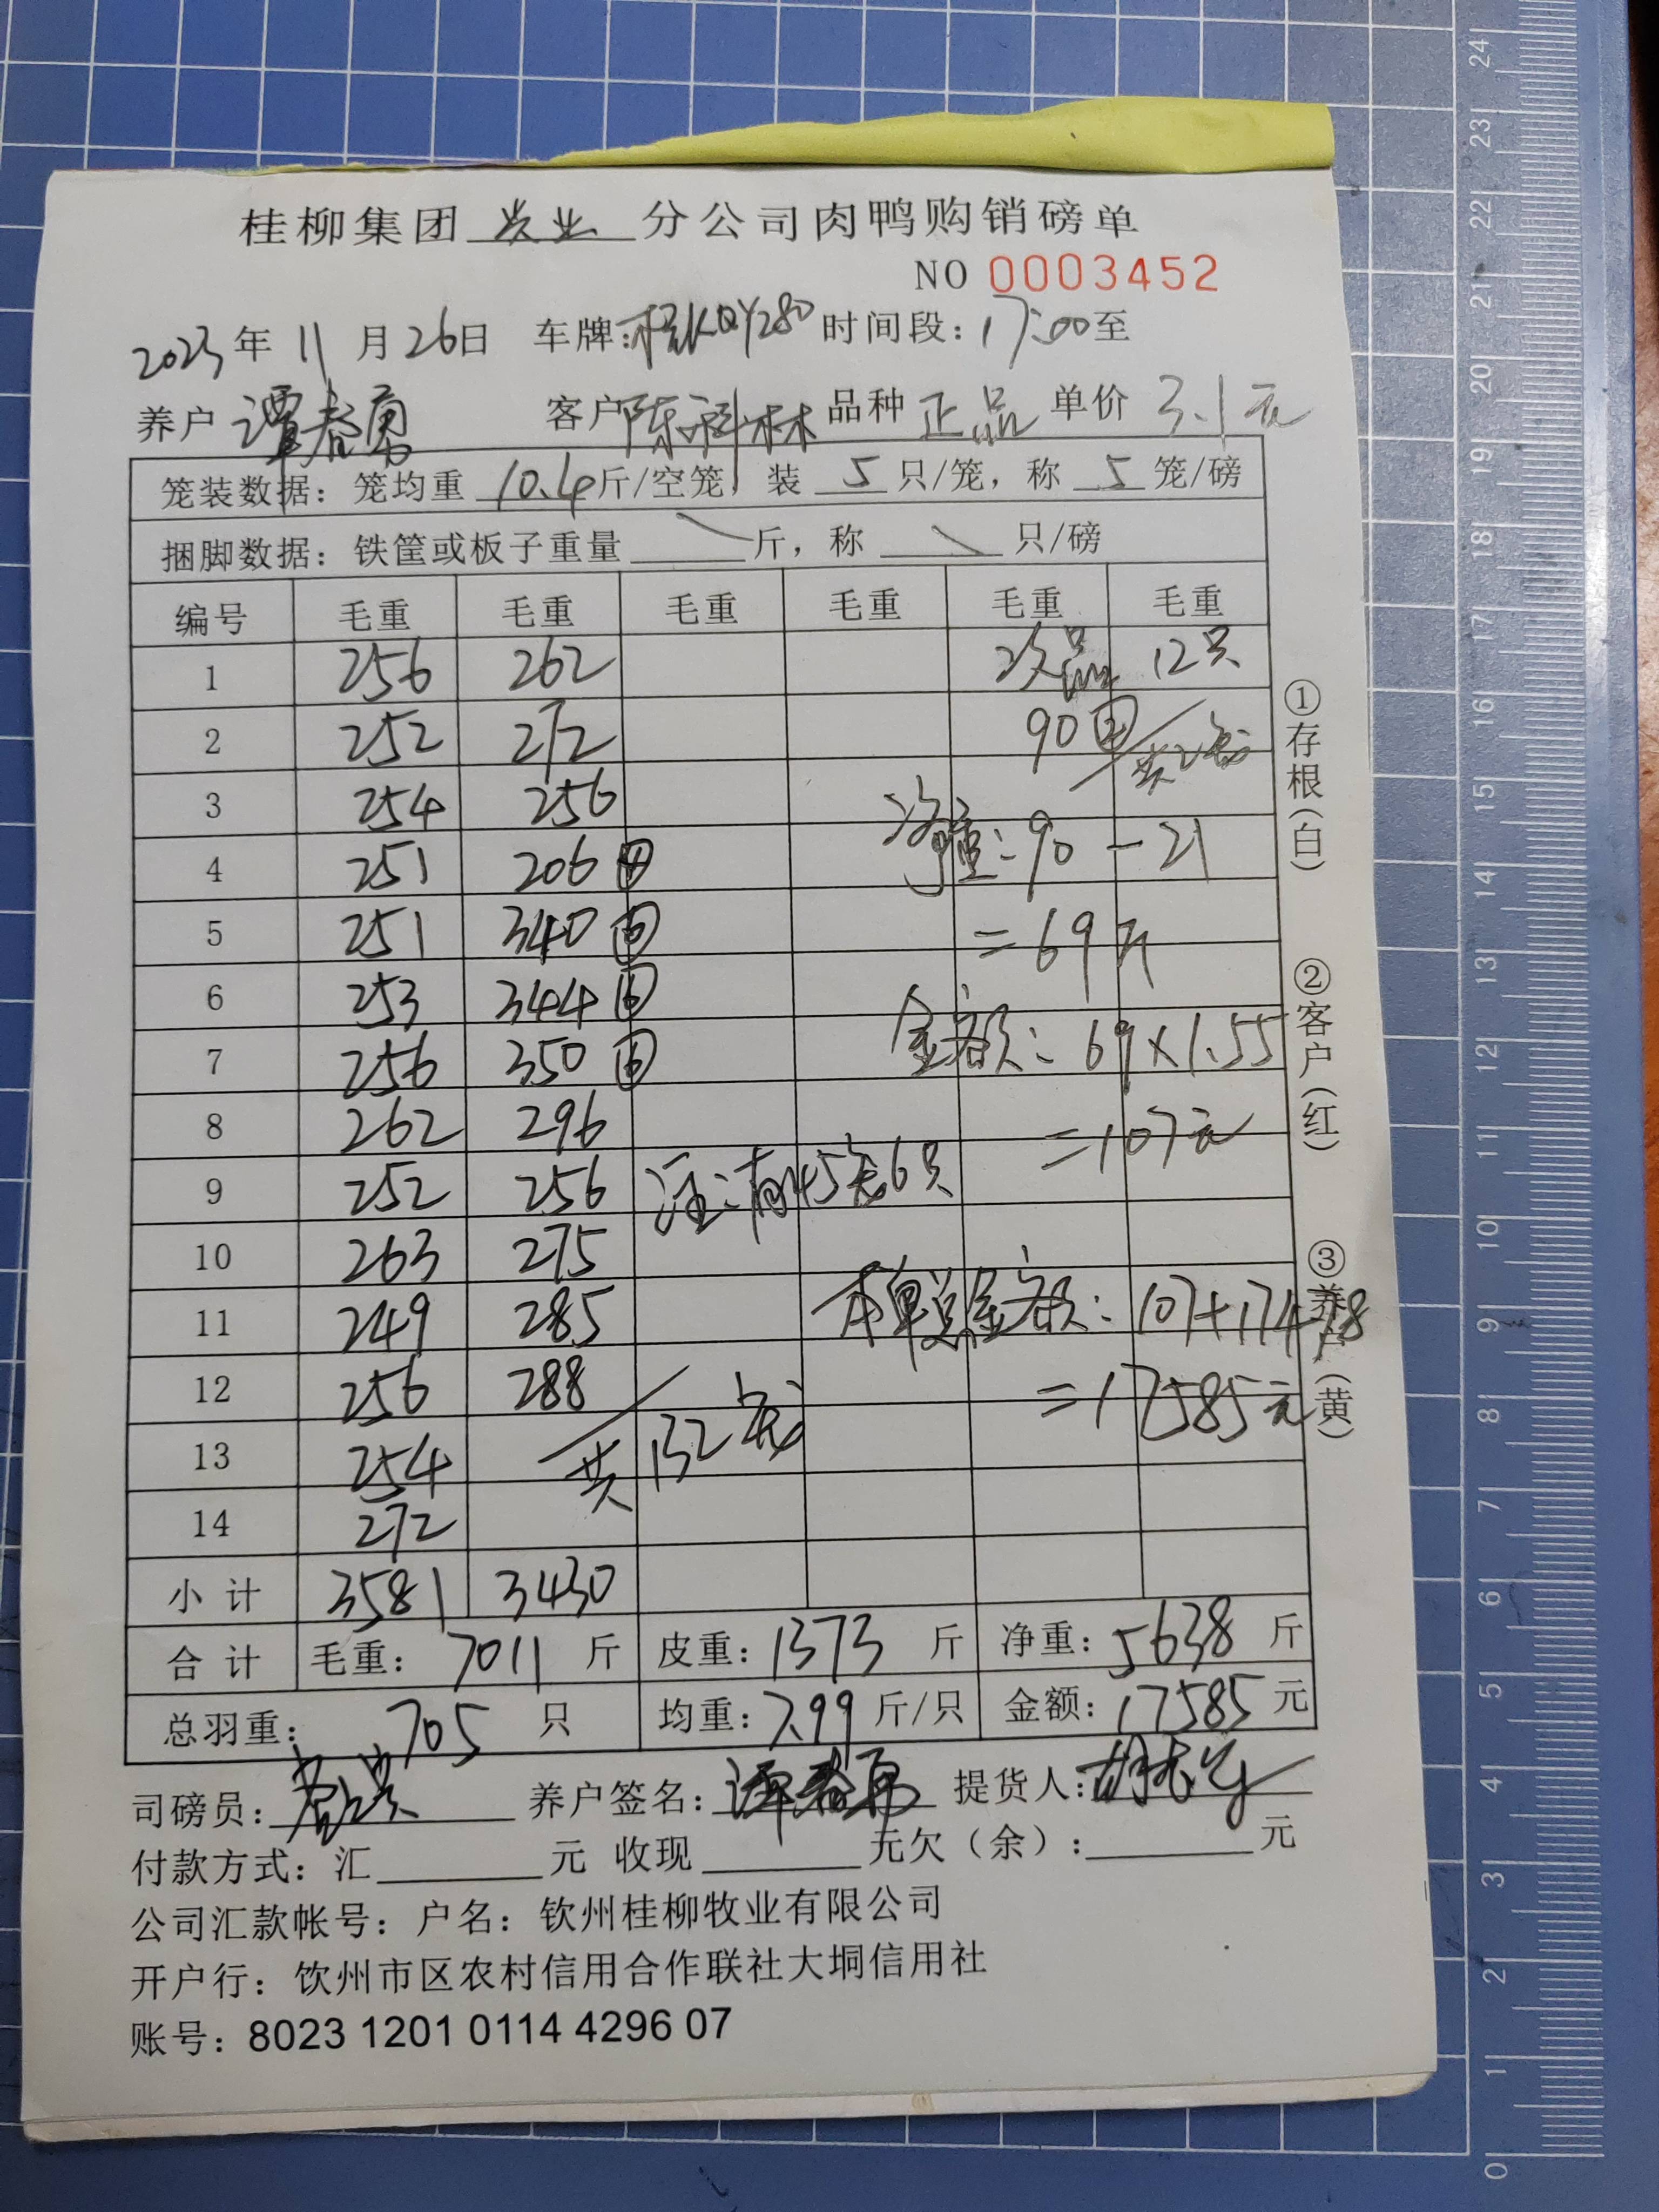 桂柳集团 兴业 分公司肉鸭购销磅单
NO 0003452
2023年 11 月 26日 车牌:桂KQY280 时间段:17:00至
养户 谭春勇 客户 陈科林 品种 正品 单价 3.1元
笼装数据:笼均重 10.4斤/空笼,装 5 只/笼,称 5 笼/磅
捆脚数据:铁筐或板子重量 \ 斤,称 \ 只/磅
编号 毛重 毛重 毛重 毛重 毛重 毛重
1 256 262 次品 12只
2 252 272 90② 共2笼
3 254 256
4 251 206④ 净重:90-21
5 251 340⑥ =69斤
6 253 344⑥
7 256 350⑥ 金额:69×1.55
8 262 296 =107元
9 252 256 注:有45笼6只
10 263 275
11 249 285 本单总金额:107+17478
12 256 288 =17585元
13 254 共132笼
14 272
小计 3581 3430
合计 毛重:7011 斤 皮重:1373 斤 净重:5638 斤
总羽重:705 只 均重:7.99 斤/只 金额:17585 元
司磅员: 养户签名:谭春勇 提货人:
付款方式:汇 元 收现 无欠(余): 元
公司汇款帐号:户名:钦州桂柳牧业有限公司
开户行:饮州市区农村信用合作联社大垌信用社
账号:8023 1201 0114 4296 07
①存根(白)
②客户(红)
③养户(黄)
24
23
22
21
20
19
18
17
16
15
14
13
12
11
10
9
8
7
6
5
4
3
2
1
0